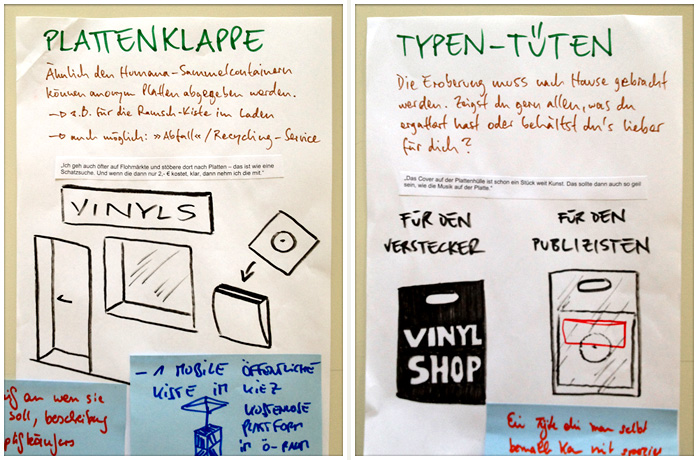 PLATTENKLAPPE
Ähnlich den Humana-Sammelcontainern
können anonym Platten abgegeben werden.
→ z.B. für die Rausch-Kiste im Laden
→ auch möglich: »Abfall«/Recycling-Service
„Ich geh auch öfter auf Flohmärkte und stöbere dort nach Platten – das ist wie eine
Schatzsuche. Und wenn die dann nur 2,- € kostet, klar, dann nehm ich die mit.“
VINYLS
an wen sie
soll,
– 1 MOBILE ÖFFENTLICHE
KISTE IM KIEZ
KOSTENLOSE
PLATTFORM
IM Ö-RAUM
TYPEN-TÜTEN
Die Eroberung muss nach Hause gebracht
werden. Zeigst du gern allen, was du
ergattert hast oder behältst du's lieber
für dich?
„Das Cover auf der Plattenhülle ist schon ein Stück weit Kunst. Das sollte dann auch so geil
sein, wie die Musik auf der Platte.“
FÜR DEN
VERSTECKER
FÜR DEN
PUBLIZISTEN
VINYL
SHOP
man selbst
mit